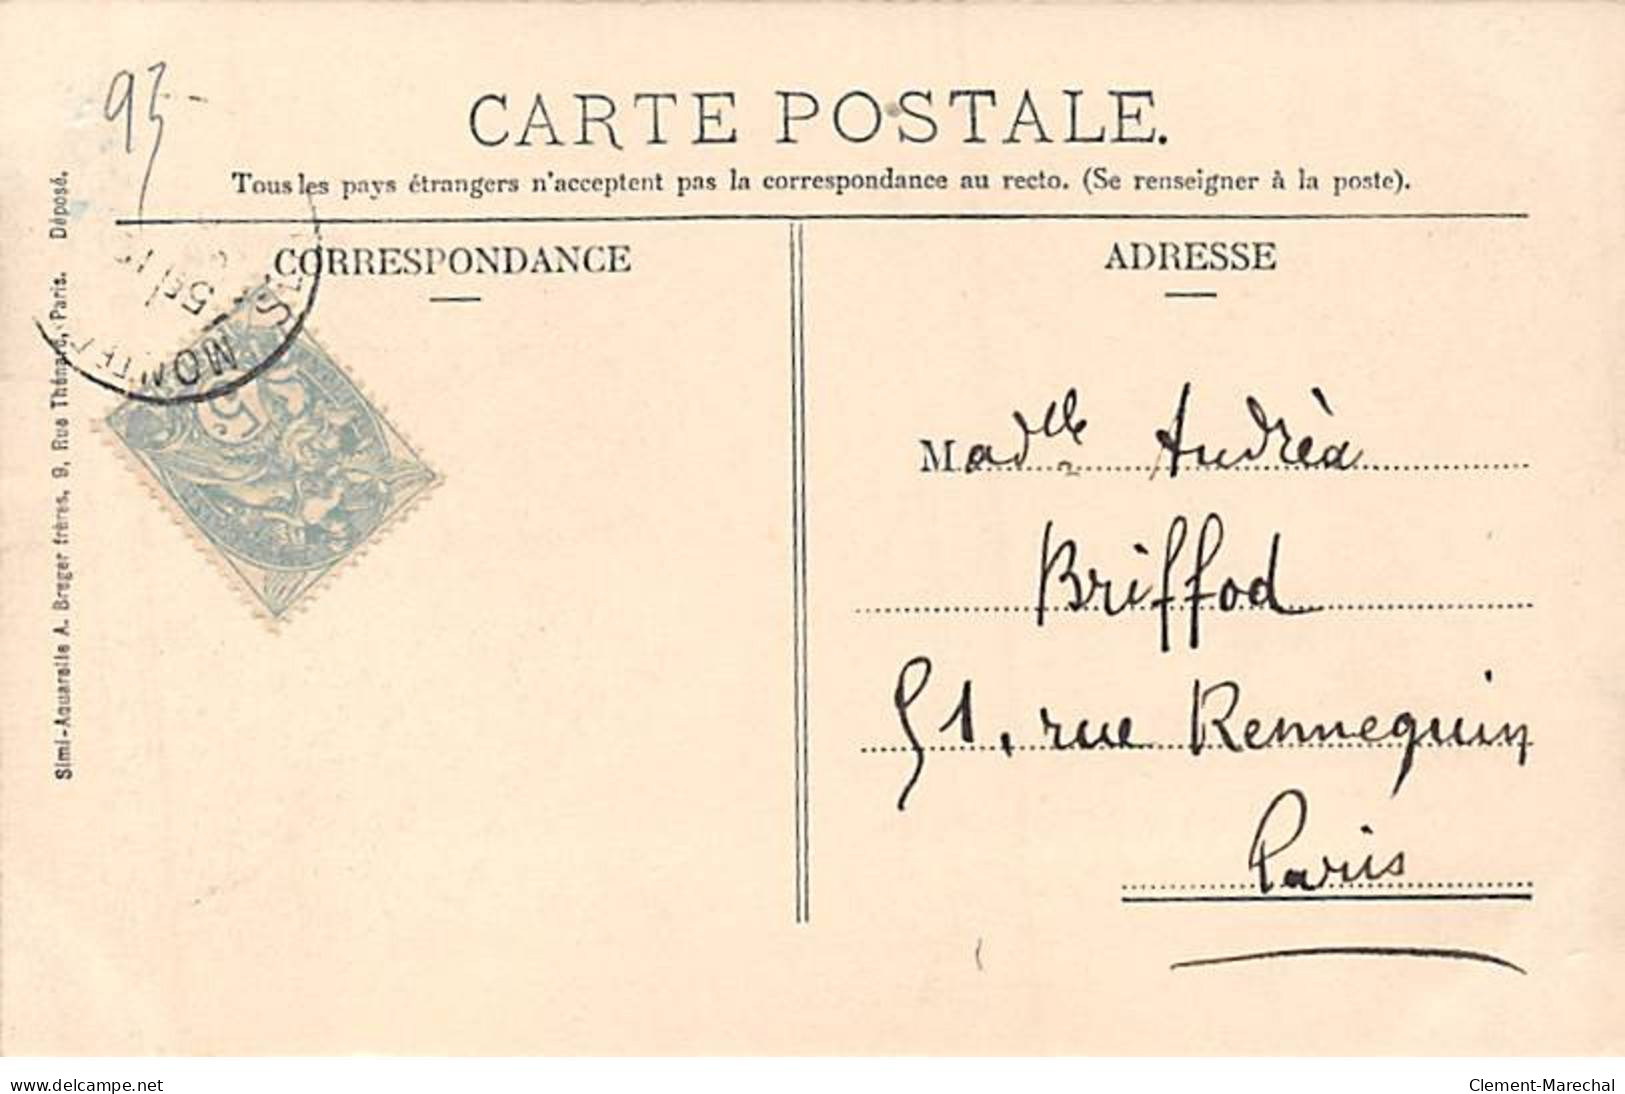 95
CARTE POSTALE.
Tous les pays étrangers n'acceptent pas la correspondance au recto. (Se renseigner à la poste).
CORRESPONDANCE
ADRESSE
Simi-Aquarelle A. Breger frères, 9, Rue Thénard, Paris. Déposé.
5c
Madelle Andrèa
Briffod
51, rue Rennequin
Paris
www.delcampe.net
Clement-Marechal